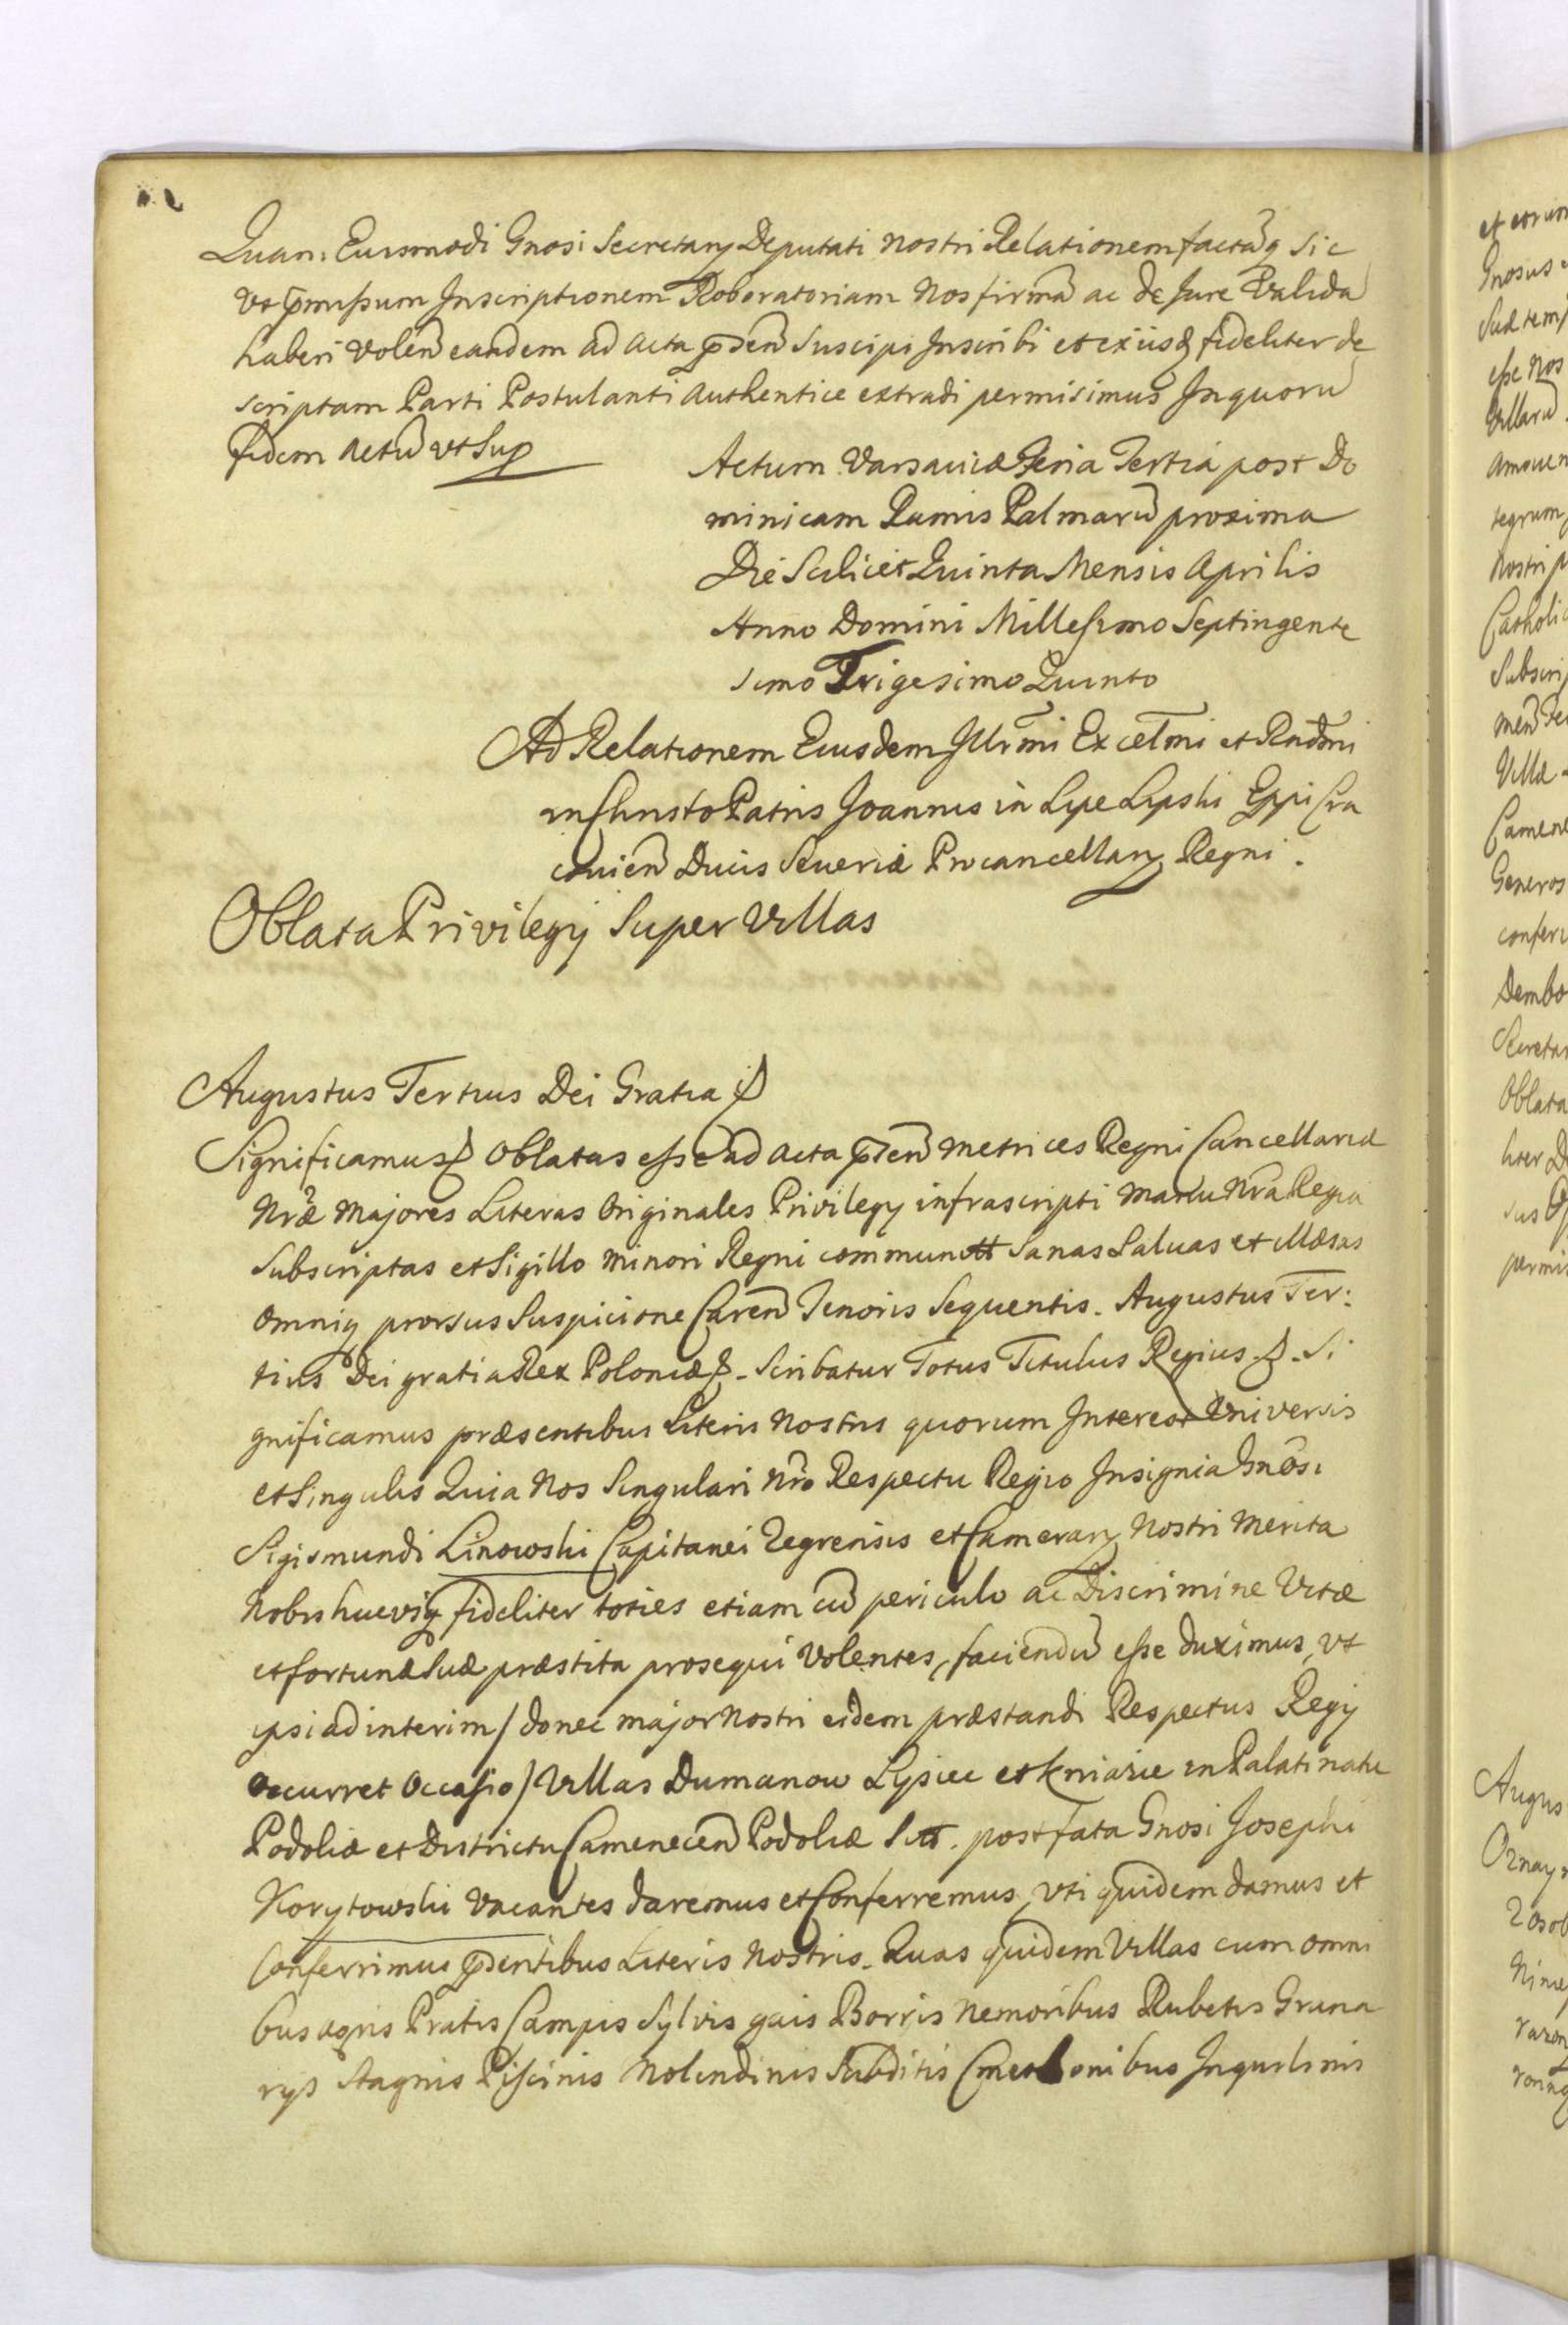 Quam Eiusmodi Gnosi Secretarÿ Deputati nostri Relationem factaq̃ Sic
Vt p̃missum Inscriptionem Roboratoriam Nos firmã ac de Jure Validã
haberi Volen̄ eandem ad Acta p̃sen̄ Suscipi Inscribi et exiisq̃ fideliter de
scriptam Parti Postulanti Authentice extradi permisimus In quorũ
fidem Actũ vt Sup̃
Actum Varsaviæ Feria Tertia post Do
minicam Ramis Palmarũ proxima
Die Scilicet Quinta Mensis Aprilis
Anno Domini Millesimo Septingente
simo Trigesimo Quinto
Ad Relationem Eiusdem Illr̃mi Excel̃mi et Rnd̃mi
in Christo Patris Joannis in Lipe Lipski Ep̃pi Cra
covien̄ Ducis Severiæ Procancellarÿ Regni.
Oblata Privilegÿ Super Villas
Augustus Tertius Dei Gratia
Significamus Oblatas esse ad Acta p̃sen̄ Metrices Regni Cancellariæ
Nr̃æ Majores Literas Originales Privilegÿ infrascripti Manu Nr̃a Regia
Subscriptas et Sigillo Minori Regni communitt Sanas Salvas et illæsas
Omniq̃ prorsus Suspicione Caren̄ Tenoris Sequentis. Augustus Ter:
tius Dei gratia Rex Poloniæ. Scribatur Totus Titulus Regius. Si
gnificamus præsentibus Literis Nostris quorum Interest Universis
et Singulis Quia Nos Singulari Nr̃o Respectu Regio Insignia Gnõsi
Sigismundi Linowski Capitanei Zegrensis et Camerarÿ Nostri Merita
Nobis hucvsq̃ fideliter toties etiam cũ periculo ac Discrimine Vitæ
et fortunæ Suæ præstita prosequi Volentes, faciendũ esse duximus, vt
ipsi ad interim / donec major Nostri eidem præstandi Respectus Regÿ
Occurret Occasio / Villas Dumanow Lysiec et Kniazie in Palatinatu
Podoliæ et Districtu Camenecen̄ Podoliæ Sitt. post fata Gnosi Josephi
Korytowski Vacantes daremus et Conferremus, Vti quidem damus et
Conferrimus p̃sentibus Literis Nostris. Quas quidem Villas cum omni
bus agris Pratis Campis Sylvis gais Borris Nemoribus Rubetis Grana
rÿs Stagnis Piscinis Molendinis Subditis Cmetonibus Inquilinis